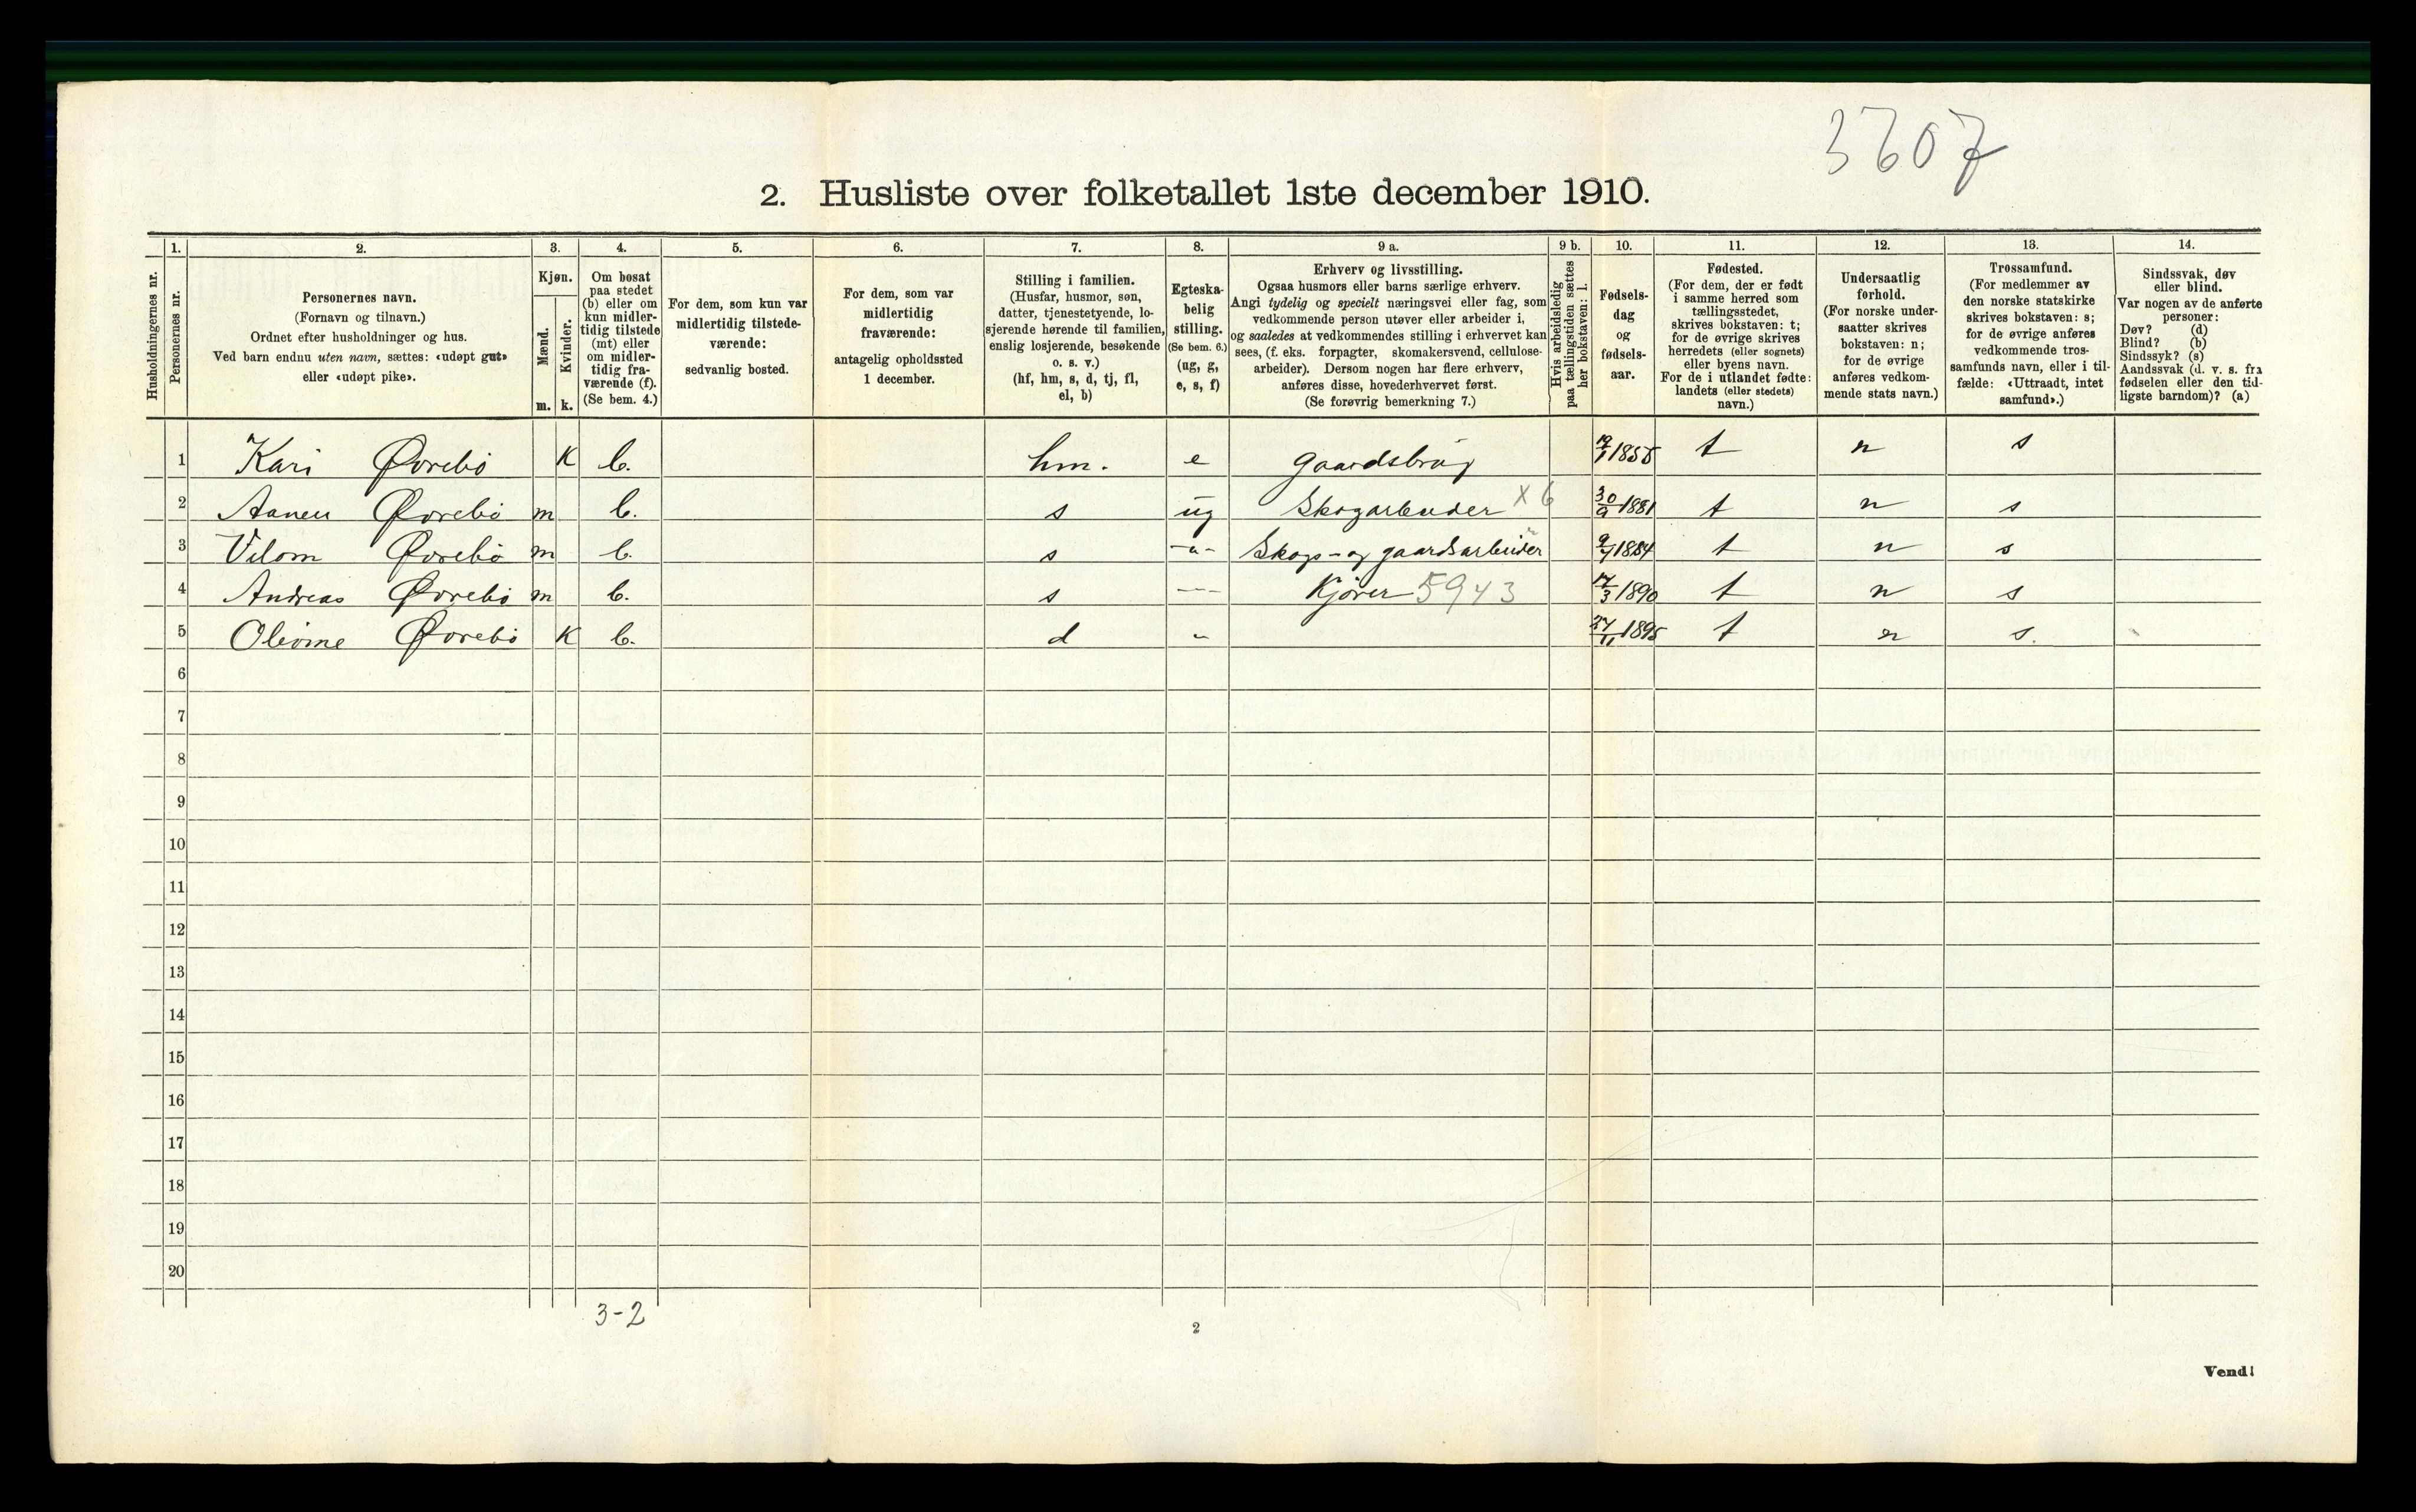 3607
2. Husliste over folketallet 1ste december 1910.
Husholdningernes nr.
1. Personernes nr.
2. Personernes navn. (Fornavn og tilnavn.) Ordnet efter husholdninger og hus. Ved barn endnu uten navn, sættes: «udøpt gut» eller «udøpt pike».
3. Kjøn. Mænd. m. Kvinder. k.
4. Om bosat paa stedet (b) eller om kun midlertidig tilstede (mt) eller om midlertidig fraværende (f). (Se bem. 4.)
5. For dem, som kun var midlertidig tilstedeværende: sedvanlig bosted.
6. For dem, som var midlertidig fraværende: antagelig opholdssted 1 december.
7. Stilling i familien. (Husfar, husmor, søn, datter, tjenestetyende, losjerende hørende til familien, enslig losjerende, besøkende o. s. v.) (hf, hm, s, d, tj, fl, el, b)
8. Egteskabelig stilling. (Se bem. 6.) (ug, g, e, s, f)
9 a. Erhverv og livsstilling. Ogsaa husmors eller barns særlige erhverv. Angi tydelig og specielt næringsvei eller fag, som vedkommende person utøver eller arbeider i, og saaledes at vedkommendes stilling i erhvervet kan sees, (f. eks. forpagter, skomakersvend, cellulosearbeider). Dersom nogen har flere erhverv, anføres disse, hovederhvervet først. (Se forøvrig bemerkning 7.)
9 b. Hvis arbeidsledig paa tællingstiden sættes her bokstaven: l.
10. Fødselsdag og fødselsaar.
11. Fødested. (For dem, der er født i samme herred som tællingsstedet, skrives bokstaven: t; for de øvrige skrives herredets (eller sognets) eller byens navn. For de i utlandet fødte: landets (eller stedets) navn.)
12. Undersaatlig forhold. (For norske undersaatter skrives bokstaven: n; for de øvrige anføres vedkommende stats navn.)
13. Trossamfund. (For medlemmer av den norske statskirke skrives bokstaven: s; for de øvrige anføres vedkommende trossamfunds navn, eller i tilfælde: «Uttraadt, intet samfund».)
14. Sindssvak, døv eller blind. Var nogen av de anførte personer: Døv? (d) Blind? (b) Sindssyk? (s) Aandssvak (d. v. s. fra fødselen eller den tidligste barndom)? (a)
1 Kari Øvrebø K b. hm. e gaardsbrug t n s
2 Aanen Øvrebø m b. s ug Skogarbeider x 6 30/9 1881 t n s
3 Vilom Øvrebø m b. s -"- Skogs- og gaardsarbeider 1884 t n s
4 Andreas Øvrebø m b. s Kjører 5943 17/3 1890 t n s
5 Olevine Øvrebø K b. d " 27/11 1895 t n s.
6
7
8
9
10
11
12
13
14
15
16
17
18
19
20
3-2
2
Vend!